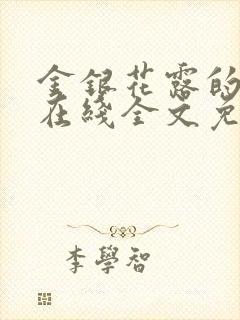 金銀花露的
在綫全文免
李學智